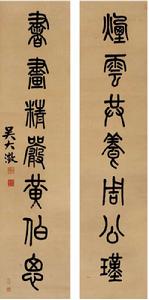 煙雲共養周公瑾
書畫精嚴黃伯思
吳大澂